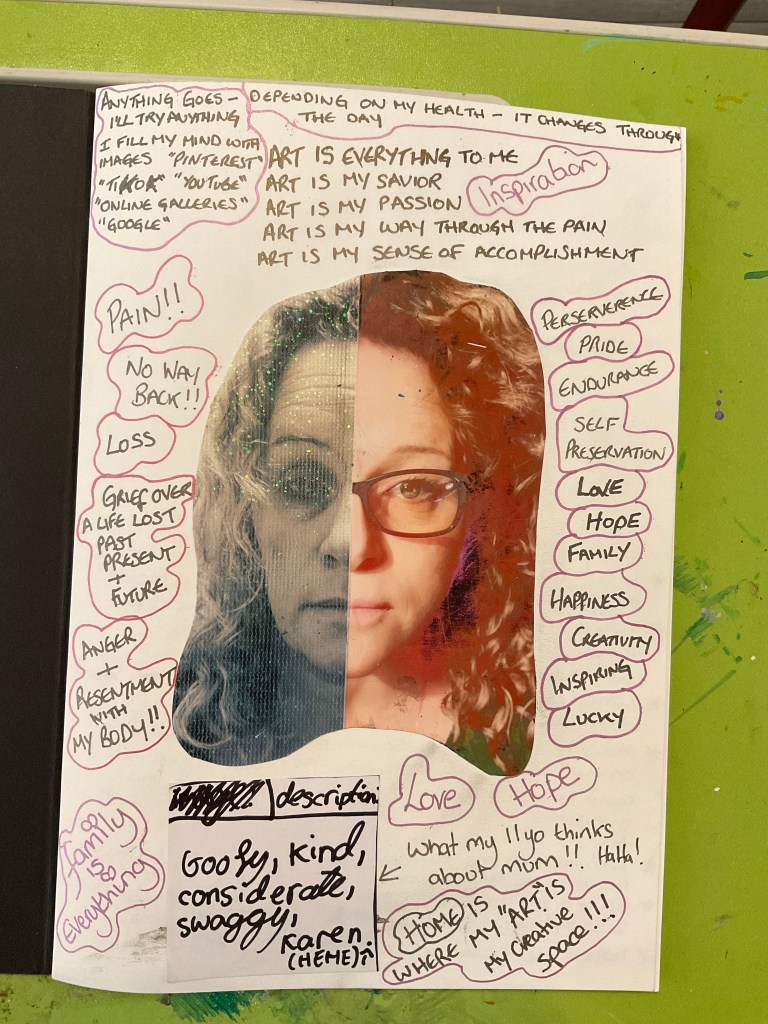 ANYTHING GOES –
I'LL TRY ANYTHING
I FILL MY MIND WITH
IMAGES "PINTEREST"
"TIKTOK" "YOUTUBE"
"ONLINE GALLERIES"
"GOOGLE"
DEPENDING ON MY HEALTH – IT CHANGES THROUGH
THE DAY
ART IS EVERYTHING TO ME
ART IS MY SAVIOR
ART IS MY PASSION
ART IS MY WAY THROUGH THE PAIN
ART IS MY SENSE OF ACCOMPLISHMENT
Inspiration
PAIN!!
NO WAY
BACK!!
LOSS
GRIEF OVER
A LIFE LOST
PAST
PRESENT
+
FUTURE
ANGER
+
RESENTMENT
WITH
MY BODY!!
PERSERVERENCE
PRIDE
ENDURANCE
SELF
PRESERVATION
LOVE
HOPE
FAMILY
HAPPINESS
CREATIVITY
INSPIRING
LUCKY
Love
Hope
family
is
Everything
description.
Goofy, kind,
considerate,
swaggy,
Karen.
(MEME)
what my 11yo thinks
about mum!! HaHa!
HOME IS
WHERE MY "ART" IS
MY CREATIVE
SPACE!!!